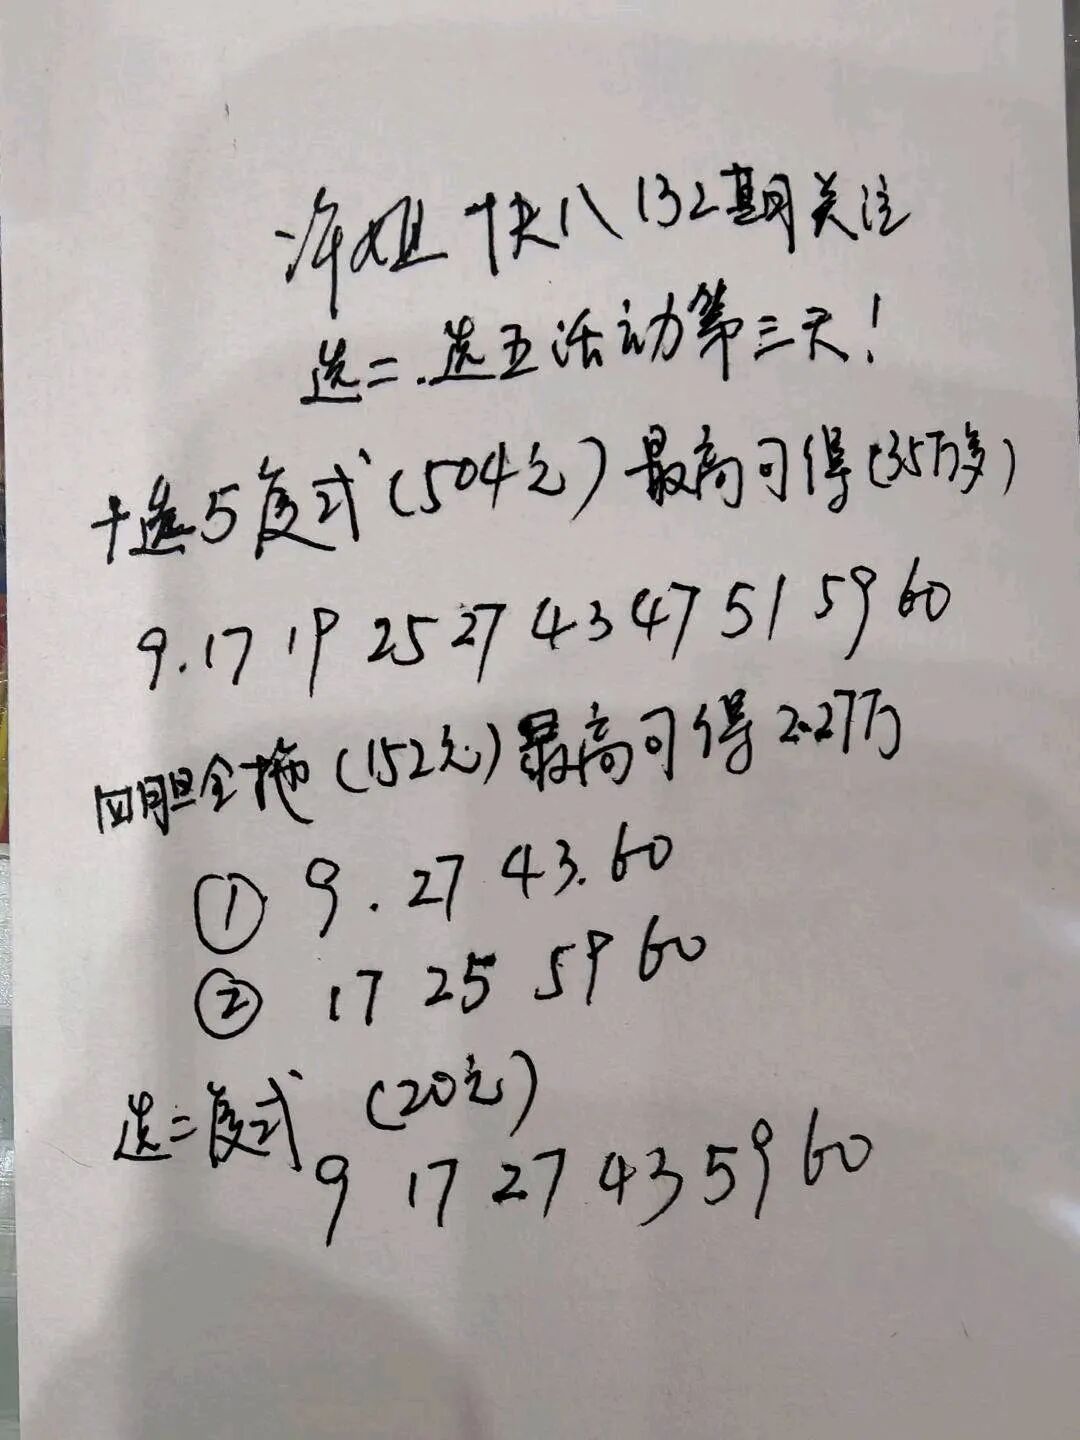 许姐快八132期关注
选二.选五活动第三天！
十选5复式(504元)最高可得(35万多)
9.17 19 25 27 43 47 51 59 60
四胆全拖(152元)最高可得2.27万
① 9.27 43.60
② 17 25 59 60
选二复式(20元)
9 17 27 43 59 60